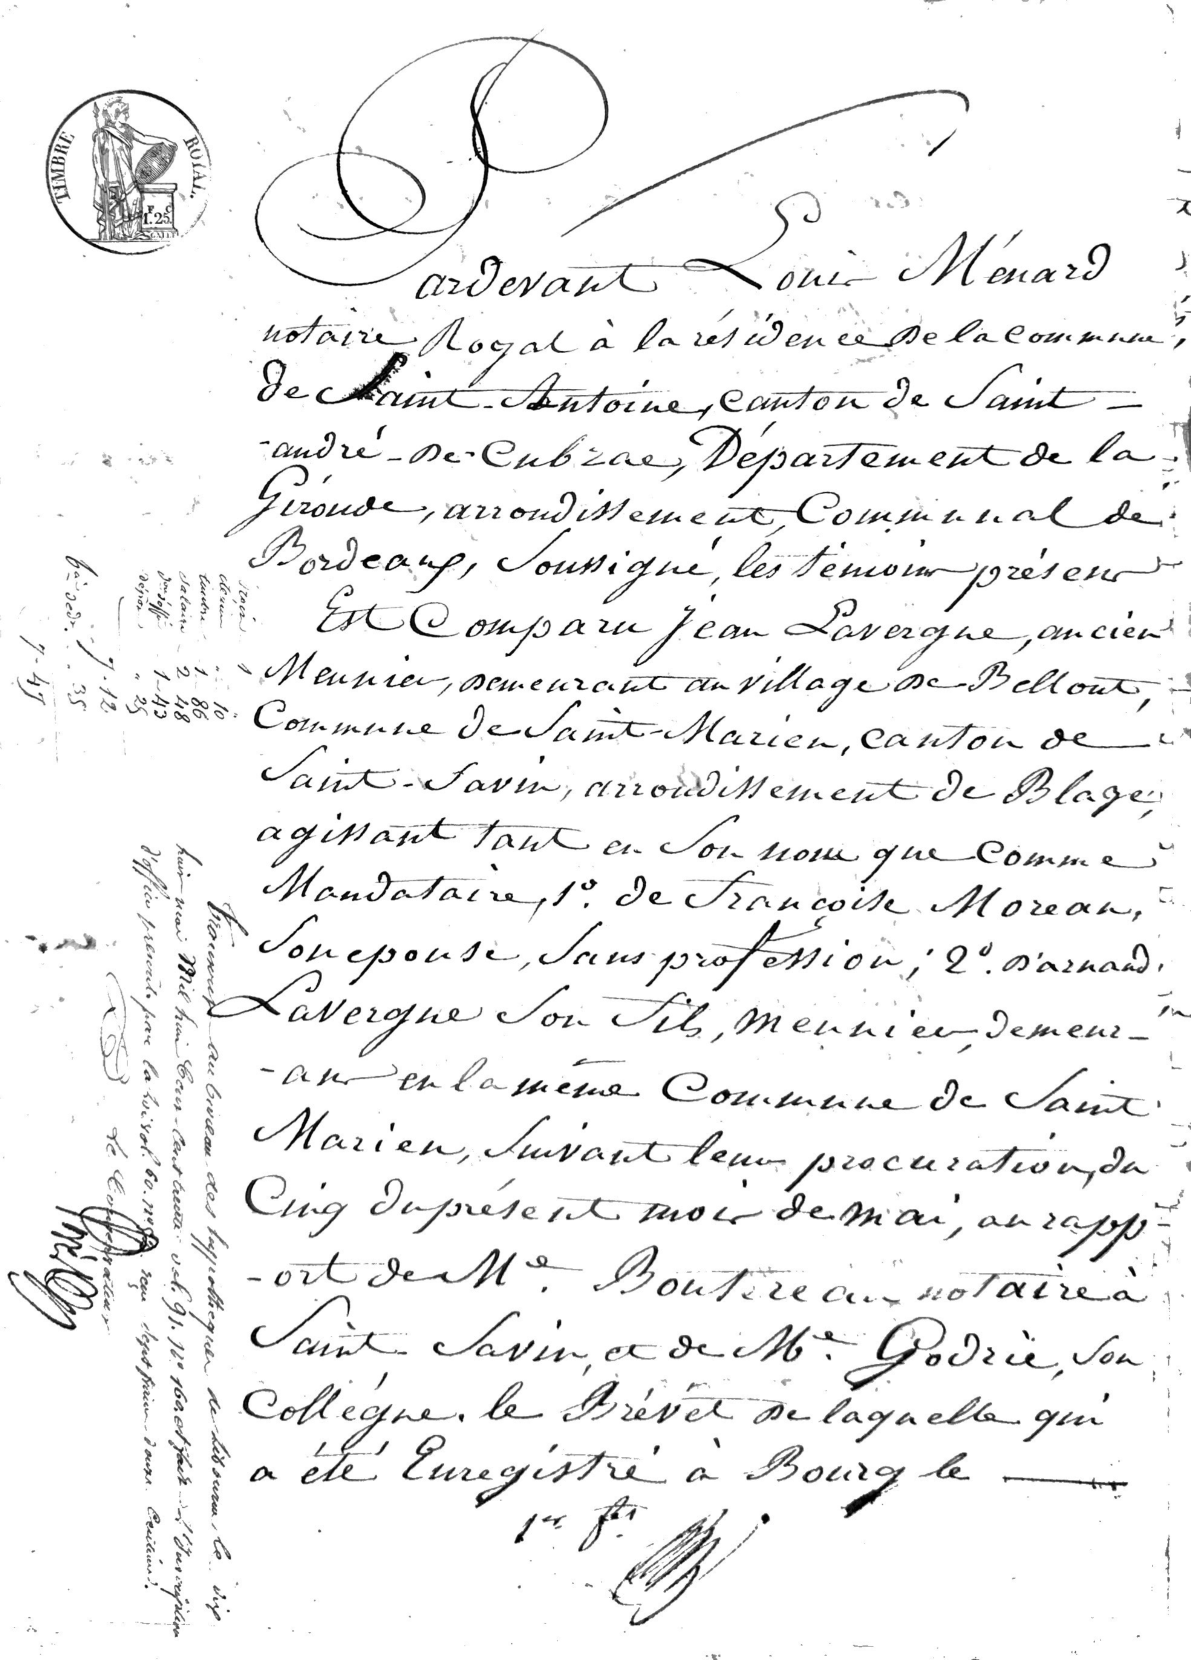 TIMBRE ROYAL.
F. C.
1.25.
Pardevant Louis Ménard
notaire Royal à la résidence de la commune,
de Saint-Antoine, canton de Saint-
-andré-de-Cubzac, Département de la
Gironde, arrondissement, Communal de
Bordeaux, Soussigné, les témoins présens
Est Comparu Jean Lavergne, ancien
Meunier, demeurant au village de Bellout,
Commune de Saint-Marien, canton de
Saint-Savin, arrondissement de Blaye,
agissant tant en son nom que comme
Mandataire, 1°. de Françoise Moreau,
Son epouse, Sans profession; 2°. d'arnaud
Lavergne Son fils, meunier, demeur-
-ant en la même Commune de Saint
Marien, Suivant leur procuration, du
Cinq du présent mois de mai, au rapp
-ort de Me. Boutireau notaire à
Saint Savin, et de Me. Godrie, Son
Collégue. le Brévet de laquelle qui
a été Enregistré à Bourg le
1er. fet
" 10
timbre 1 - 86
Salaire 2 48
1 - 43
" 25
7 - 12
" 35
7 - 47
Transcrit au bureau des hypothèques de Libourne, le dix
huit mai Mil huit Cent trente vol. 91. No
d'office prescrite par la loi vol. 60. no reçu sept francs douze Centimes.
Le Conservateur